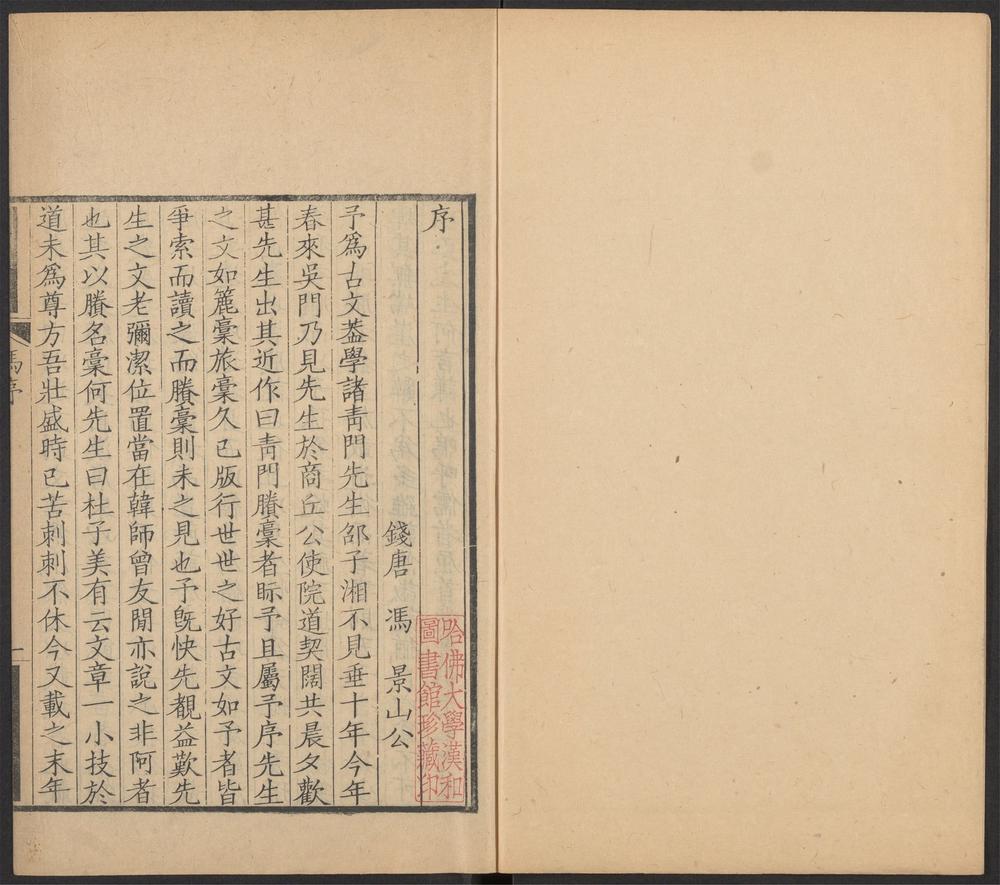 序
錢唐 馮 景山公
予爲古文葢學諸靑門先生邵子湘不見垂十年今年
春來吳門乃見先生於商丘公使院道契闊共晨夕歡
甚先生出其近作曰靑門賸稾者眎予且屬予序先生
之文如簏稾旅稾久已版行世世之好古文如予者皆
爭索而讀之而賸稾則未之見也予旣快先覩益歎先
生之文老彌潔位置當在韓師曾友閒亦說之非阿者
也其以賸名稾何先生曰杜子美有云文章一小技於
道未爲尊方吾壯盛時已苦刺刺不休今又載之末年
馮序
一
哈佛大學漢和
圖書館珍藏印